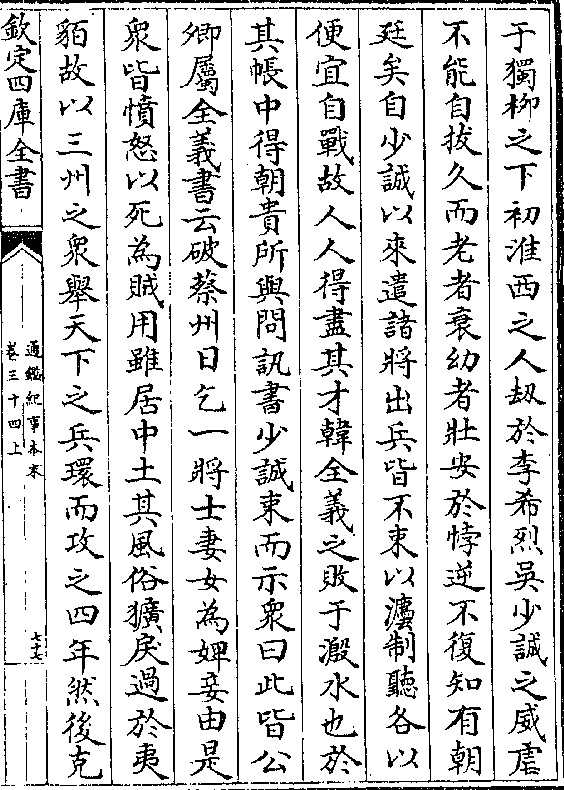 于獨柳之下初淮西之人刼於李希烈吳少誠之威虐
不能自拔久而老者衰幼者壯安於悖逆不復知有朝
廷矣自少誠以來遣諸將出兵皆不束以灋制聽各以
便宜自戰故人人得盡其才韓全義之敗于溵水也於
其帳中得朝貴所與問訊書少誠束而示衆曰此皆公
卿屬全義書云破蔡州日乞一將士妻女為婢妾由是
衆皆憤怒以死為賊用雖居中土其風俗獷戾過於夷
貊故以三州之衆舉天下之兵環而攻之四年然後克
欽定四庫全書
通鑑紀事本末
卷三十四上
七十七